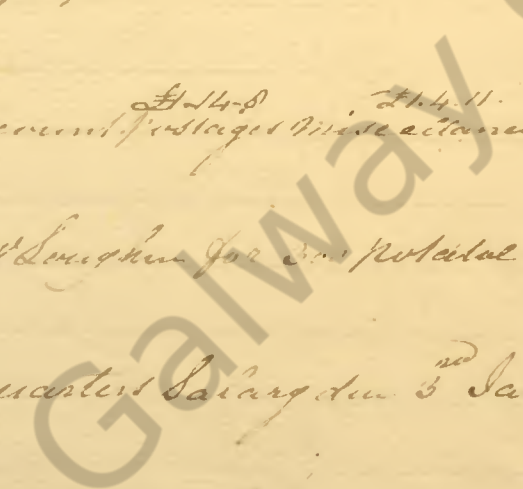 £1-14-8 £1.4.11.
count Postages Miscellane
Loughlin for potatoe
uarters Salary due 3rd Ja
Galway